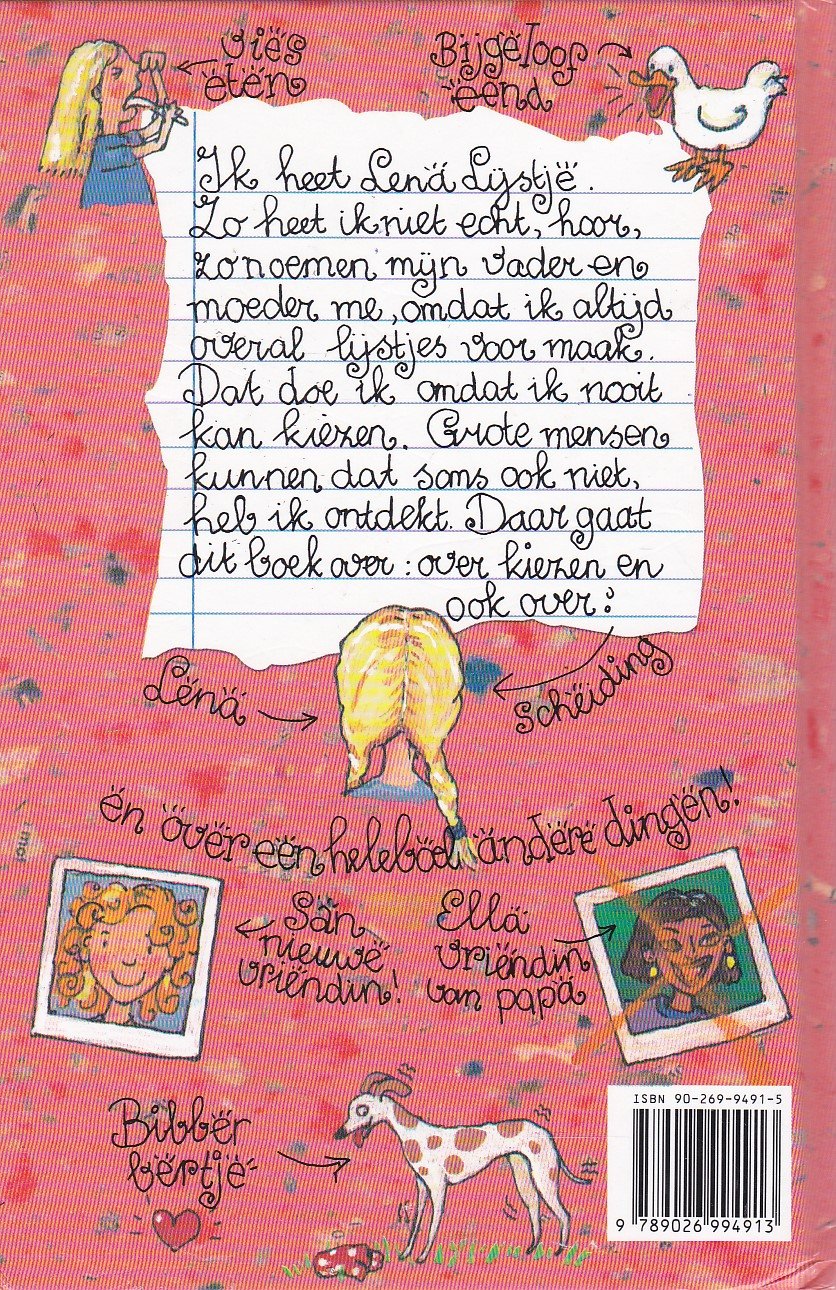 vies
eten
Bijgeloof
eend
Ik heet Lena Lijstje.
Zo heet ik niet echt, hoor,
zo noemen mijn vader en
moeder me, omdat ik altijd
overal lijstjes voor maak.
Dat doe ik omdat ik nooit
kan kiezen. Grote mensen
kunnen dat soms ook niet,
heb ik ontdekt. Daar gaat
dit boek over: over kiezen en
ook over:
Lena
scheiding
en over een heleboel andere dingen!
San
nieuwe
vriendin!
Ella
vriendin
van papa
Bibber
bertje
ISBN 90-269-9491-5
9 789026 994913